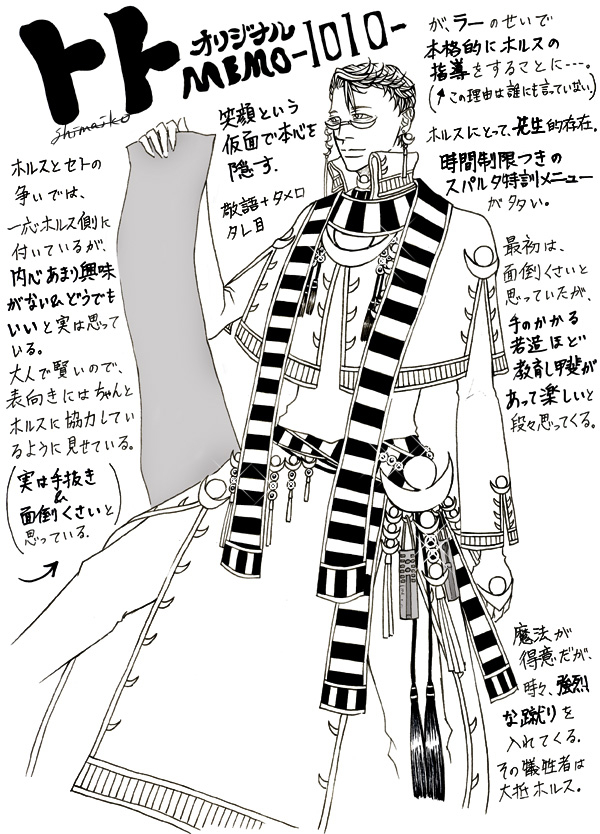 トト
オリジナル
MEMO-1010-
shimaiko
笑顔という
仮面で本心を
隠す.
敬語+タメ口
タレ目
ホルスとセトの
争いでは、
一応ホルス側に
付いているが、
内心あまり興味
がない&どうでも
いいと実は思って
いる。
大人で賢いので、
表向きにはちゃんと
ホルスに協力してい
るように見せている。
(実は手抜き
&
面倒くさいと
思っている.)
が、ラーのせいで
本格的にホルスの
指導をすることに…。
(↑この理由は誰にも言っていない)
ホルスにとって、先生的存在.
時間制限つきの
スパルタ特訓メニュー
が多い。
最初は、
面倒くさいと
思っていたが、
手のかかる
若造ほど
教育し甲斐が
あって楽しいと
段々思ってくる。
魔法が
得意だが、
時々、強烈
な蹴りを
入れてくる.
その犠牲者は
大抵ホルス.